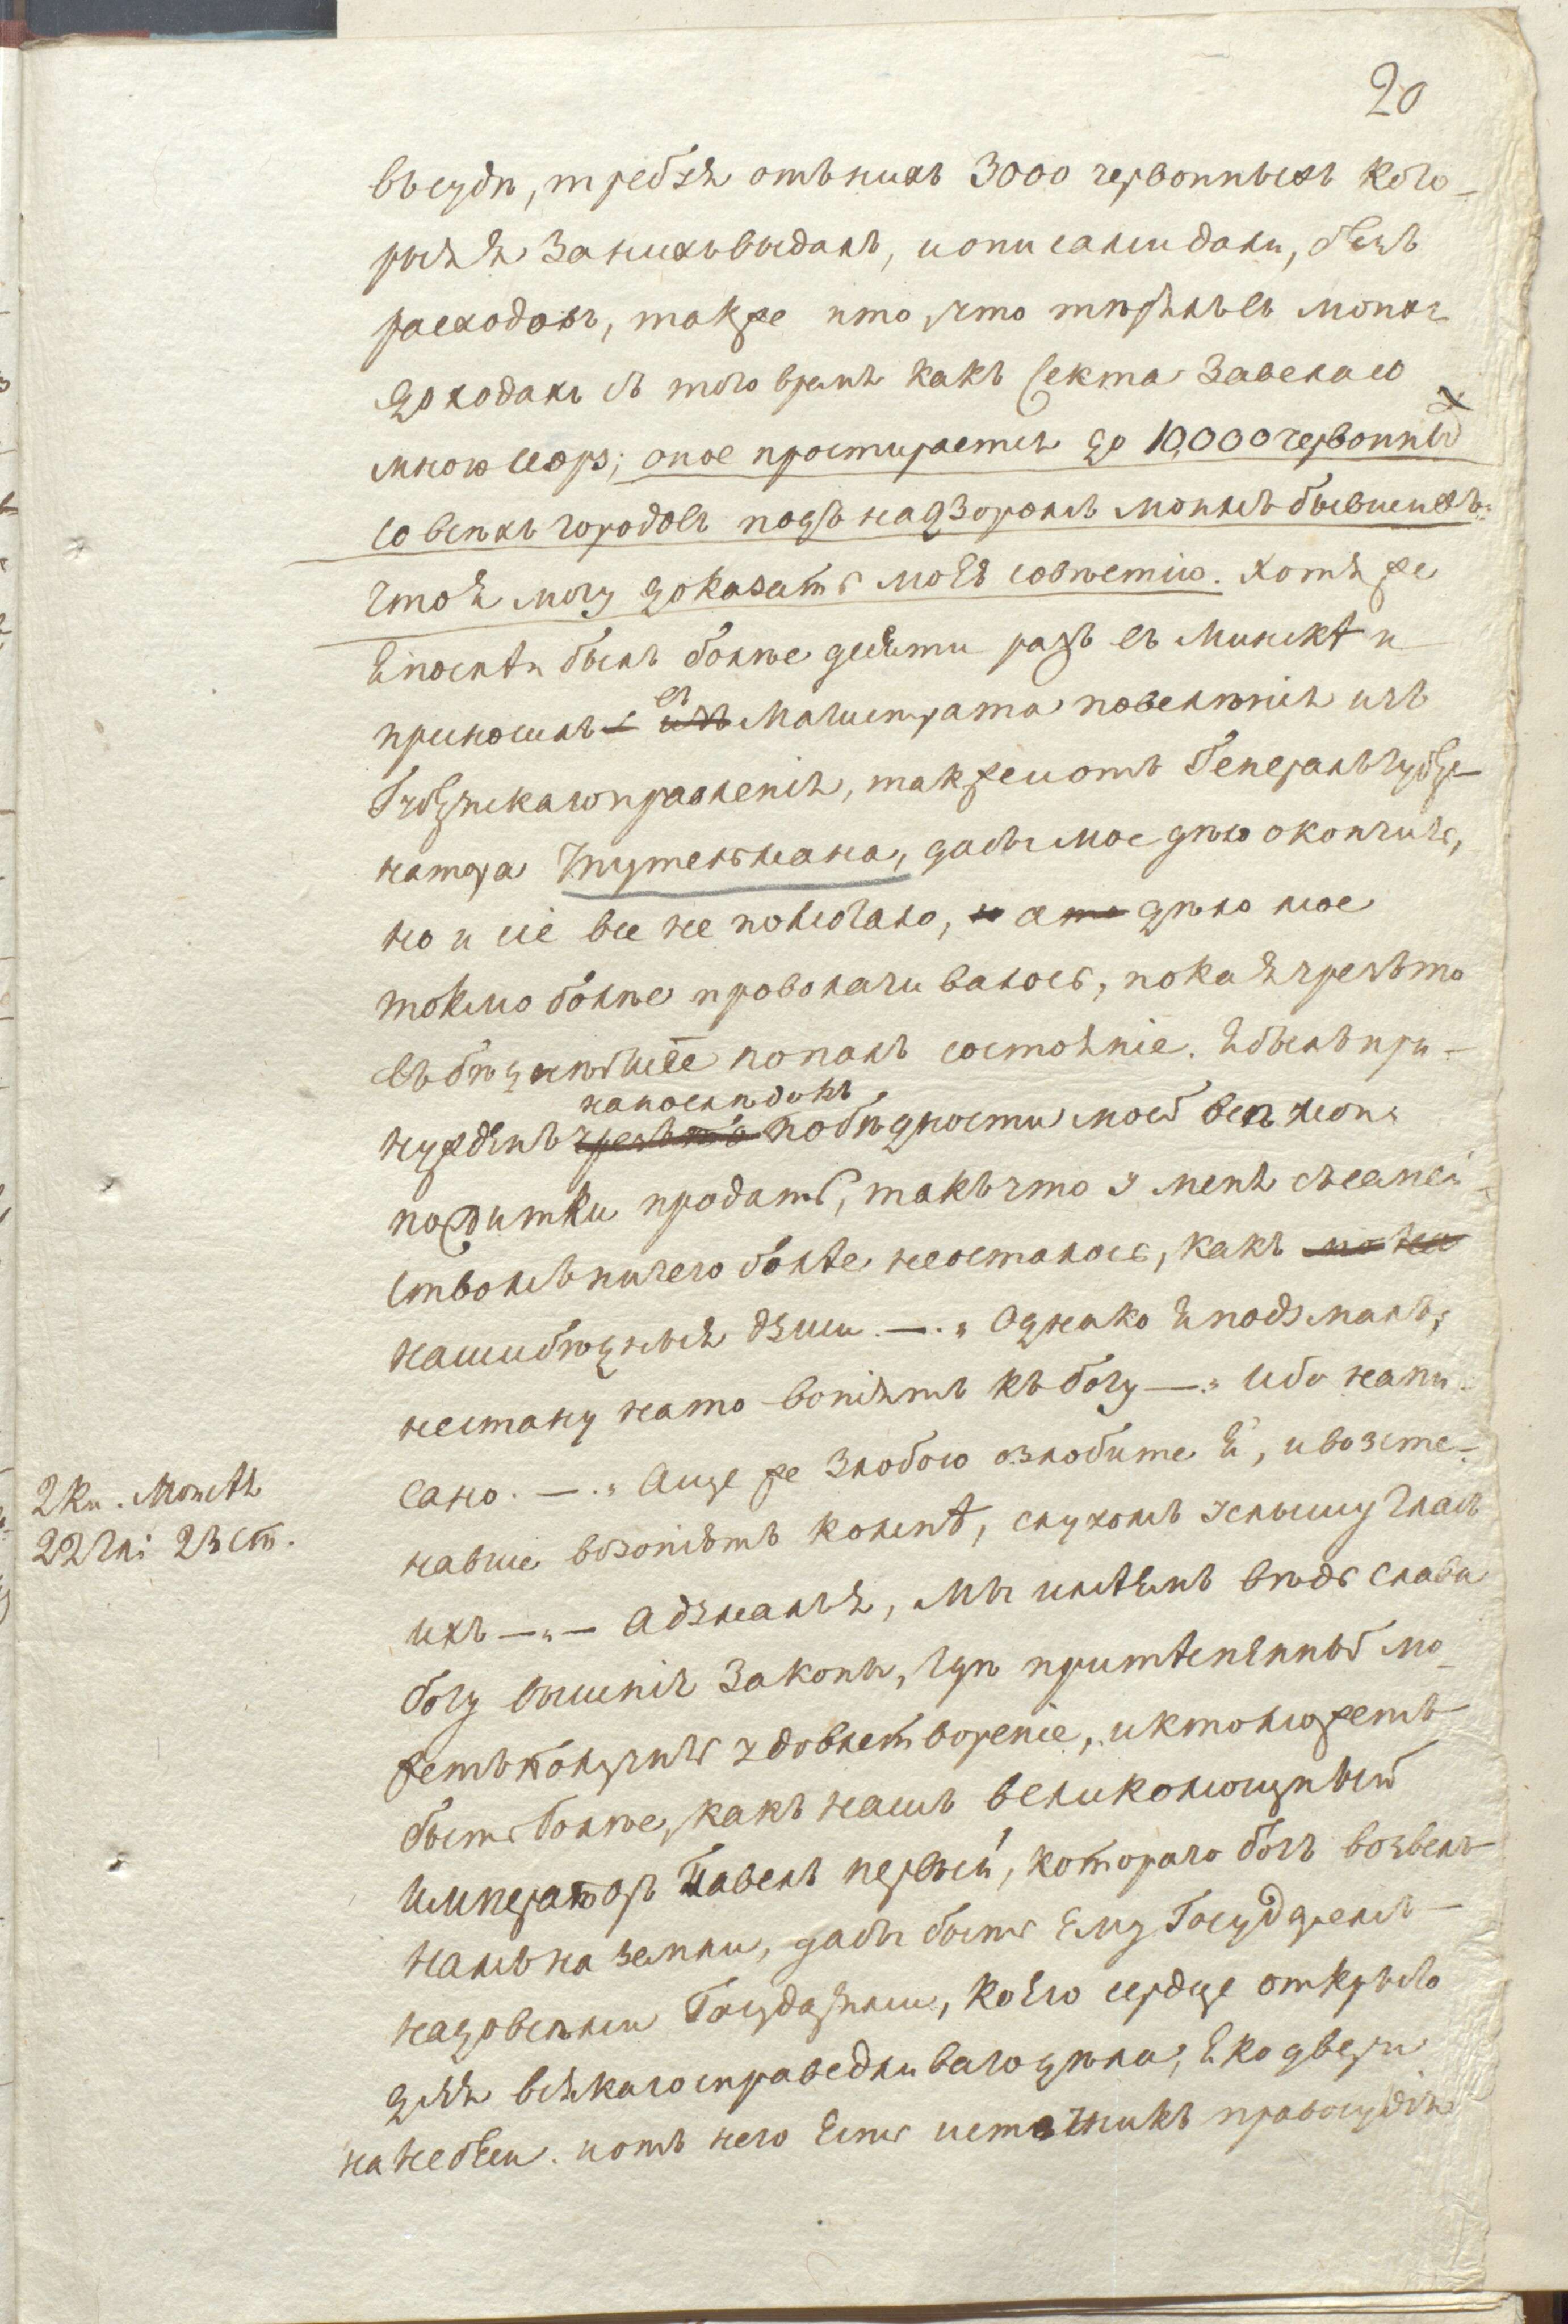 20
въ судѣ, требуя отъ нихъ 3000 червонныхъ кото-
рыя я за нихъ выдалъ, и описалъ и дали, безъ
расходовъ, также и то, что терялъ въ моихъ
доходахъ съ того время какъ секта завела со
мною ссору; оное простирается до 10,000 червонных
со всѣхъ городовъ подъ надзоромъ моимъ бывшихъ:
что я могу доказать моей совѣстію. Хотя же
я послѣ былъ болѣе десяти разъ въ Минскѣ и
приносилъ въ Магистратъ повелѣнія изъ
Губернскаго правленія, также и отъ Генералъ губер-
натора Тутельмана, дабы мое дѣло окончить,
но и сіе все не помогало, а дѣло мое
токмо болѣе проволачивалось, пока я чрезъ то
въ бѣднѣйшее попалъ состояніе. Я былъ при-
напослѣдокъ
нужденъ по бѣдности моей всѣ мои
пожитки продать, такъ что у меня съ семей-
ствомъ ничего болѣе не осталось, какъ
наши бѣдныя души. —. Однако я подумалъ,
не стану на то вопіять къ богу —. Ибо напи-
сано. —. Аще же злобою озлобите я, и возсте-
навше возопіютъ ко мнѣ, слухомъ услышу гласъ
ихъ —„— а думалъ я, мы имѣемъ вѣдь слава
2 Кн. Моисѣя
22 гл: 23 ст.
богу вышнія законы, гдѣ притѣсненный мо-
жетъ получить удовлетвореніе, и кто можетъ
быть болѣе, какъ нашъ великомощный
Императоръ Павелъ первый, котораго богъ возвелъ
намъ на земли, дабы быть Ему Государемъ
надо всѣми Государями, коего сердце открыто
для всякаго справедливаго дѣла, яко двери
на небеси. и отъ него есть источникъ правосудія